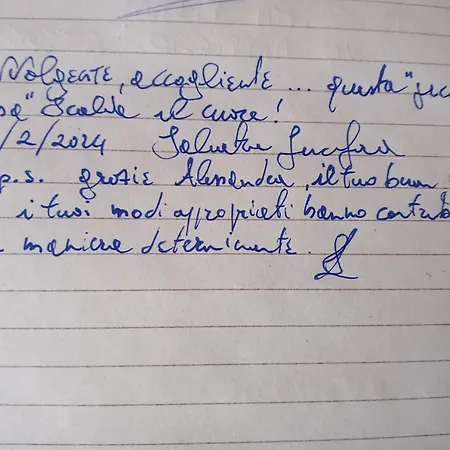 Volgente, accogliente ... questa "
" Scalda il cuore!
/2/2024 Salvatore
p.s. grazie Alessandra, il tuo buon
i tuoi modi appropriati hanno contrib
maniera determinante.